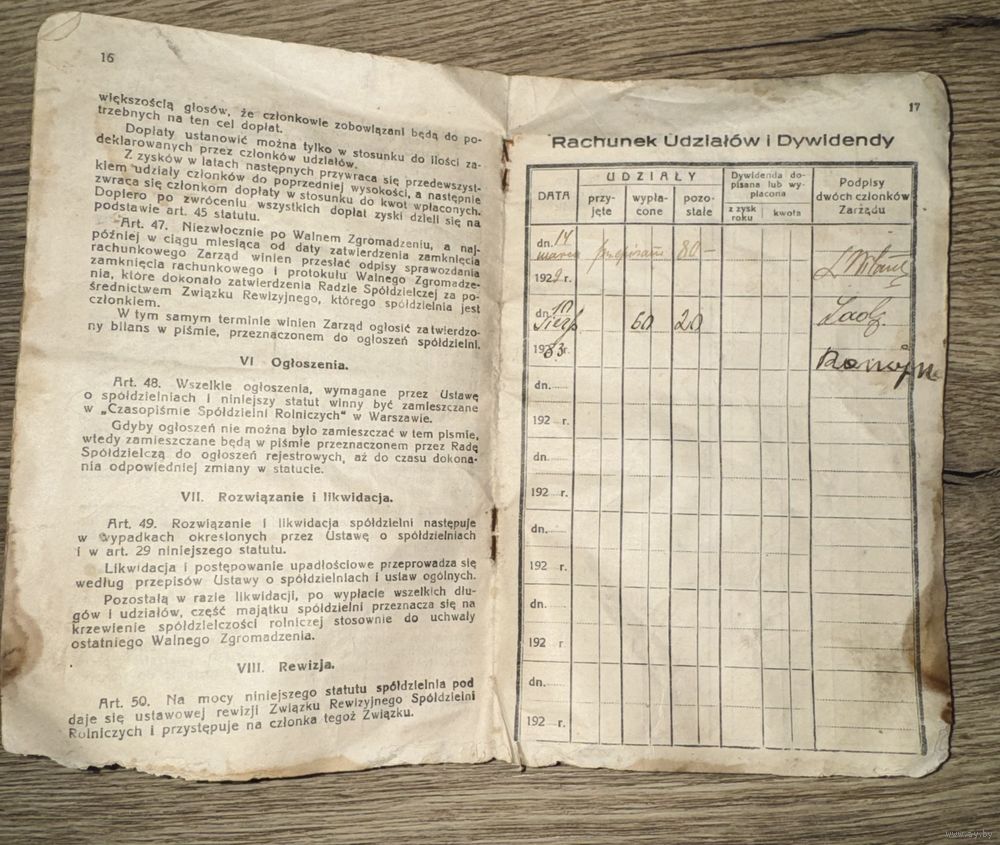 16
większością głosów, że członkowie zobowiązani będą do po-
trzebnych na ten cel dopłat.
Dopłaty ustanowić można tylko w stosunku do ilości za-
deklarowanych przez członków udziałów.
Z zysków w latach następnych przywraca się przedewszyst-
kiem udziały członków do poprzedniej wysokości, a następnie
zwraca się członkom dopłaty w stosunku do kwot wpłaconych.
Dopiero po zwróceniu wszystkich dopłat zyski dzieli się na
podstawie art. 45 statutu.
Art. 47. Niezwłocznie po Walnem Zgromadzeniu, a naj-
później w ciągu miesiąca od daty zatwierdzenia zamknięcia
rachunkowego Zarząd winien przesłać odpisy sprawozdania
zamknięcia rachunkowego i protokułu Walnego Zgromadze-
nia, które dokonało zatwierdzenia Radzie Spółdzielczej za po-
średnictwem Związku Rewizyjnego, którego spółdzielnia jest
członkiem.
W tym samym terminie winien Zarząd ogłosić zatwierdzo-
ny bilans w piśmie, przeznaczonem do ogłoszeń spółdzielni.
VI Ogłoszenia.
Art. 48. Wszelkie ogłoszenia, wymagane przez Ustawę
o spółdzielniach i niniejszy statut winny być zamieszczane
w „Czasopiśmie Spółdzielni Rolniczych" w Warszawie.
Gdyby ogłoszeń nie można było zamieszczać w tem pismie,
wtedy zamieszczane będą w piśmie przeznaczonem przez Radę
Spółdzielczą do ogłoszeń rejestrowych, aż do czasu dokona-
nia odpowiedniej zmiany w statucie.
VII. Rozwiązanie i likwidacja.
Art. 49. Rozwiązanie i likwidacja spółdzielni następuje
w wypadkach okreslonych przez Ustawę o spółdzielniach
i w art. 29 niniejszego statutu.
Likwidacja i postępowanie upadłościowe przeprowadza się
według przepisów Ustawy o spółdzielniach i ustaw ogólnych.
Pozostałą w razie likwidacji, po wypłacie wszelkich dłu-
gów i udziałów, część majątku spółdzielni przeznacza się na
krzewienie spółdzielczości rolniczej stosownie do uchwały
ostatniego Walnego Zgromadzenia.
VIII. Rewizja.
Art. 50. Na mocy niniejszego statutu spółdzielnia pod
daje się ustawowej rewizji Związku Rewizyjnego Spółdzielni
Rolniczych i przystępuje na członka tegoż Związku.
17
Rachunek Udziałów i Dywidendy
DATA
UDZIAŁY
przy-
jęte
wypła-
cone
pozo-
stałe
Dywidenda do-
pisana lub wy-
płacona
z zysk
roku
kwota
Podpisy
dwóch członków
Zarządu
dn. 14
marca 80-
192 r.
dn. 10
60 20
193 r.
dn.
192 r.
dn.
192 r.
dn.
192 r.
dn.
192 r.
dn.
192 r.
www.ay.by